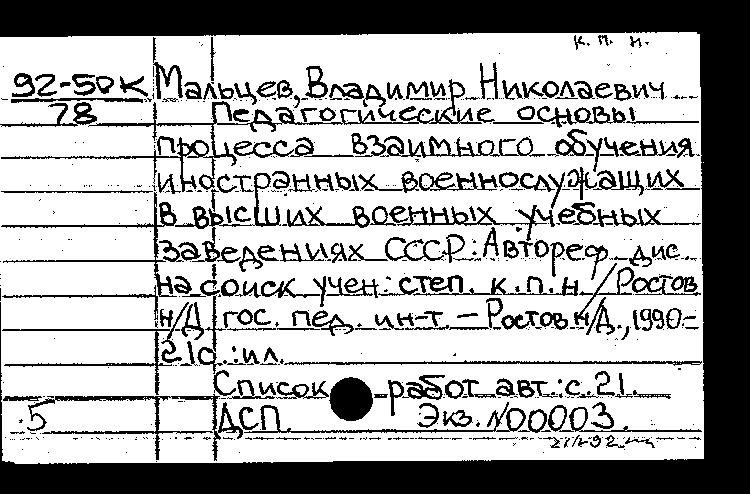 к. п. н.
92-5DК Мальцев, Владимир Николаевич
78 Педагогические основы
процесса взаимного обучения
иностранных военнослужащих
в высших военных учебных
заведениях СССР: Автореф. дис.
на соиск учен: степ. к.п.н. / Ростов
н/Д гос. пед. ин-т. – Ростов н/Д., 1990 –
21с.: ил.
Список работ авт.: с. 21.
.5 ДСП. Экз. N00003.